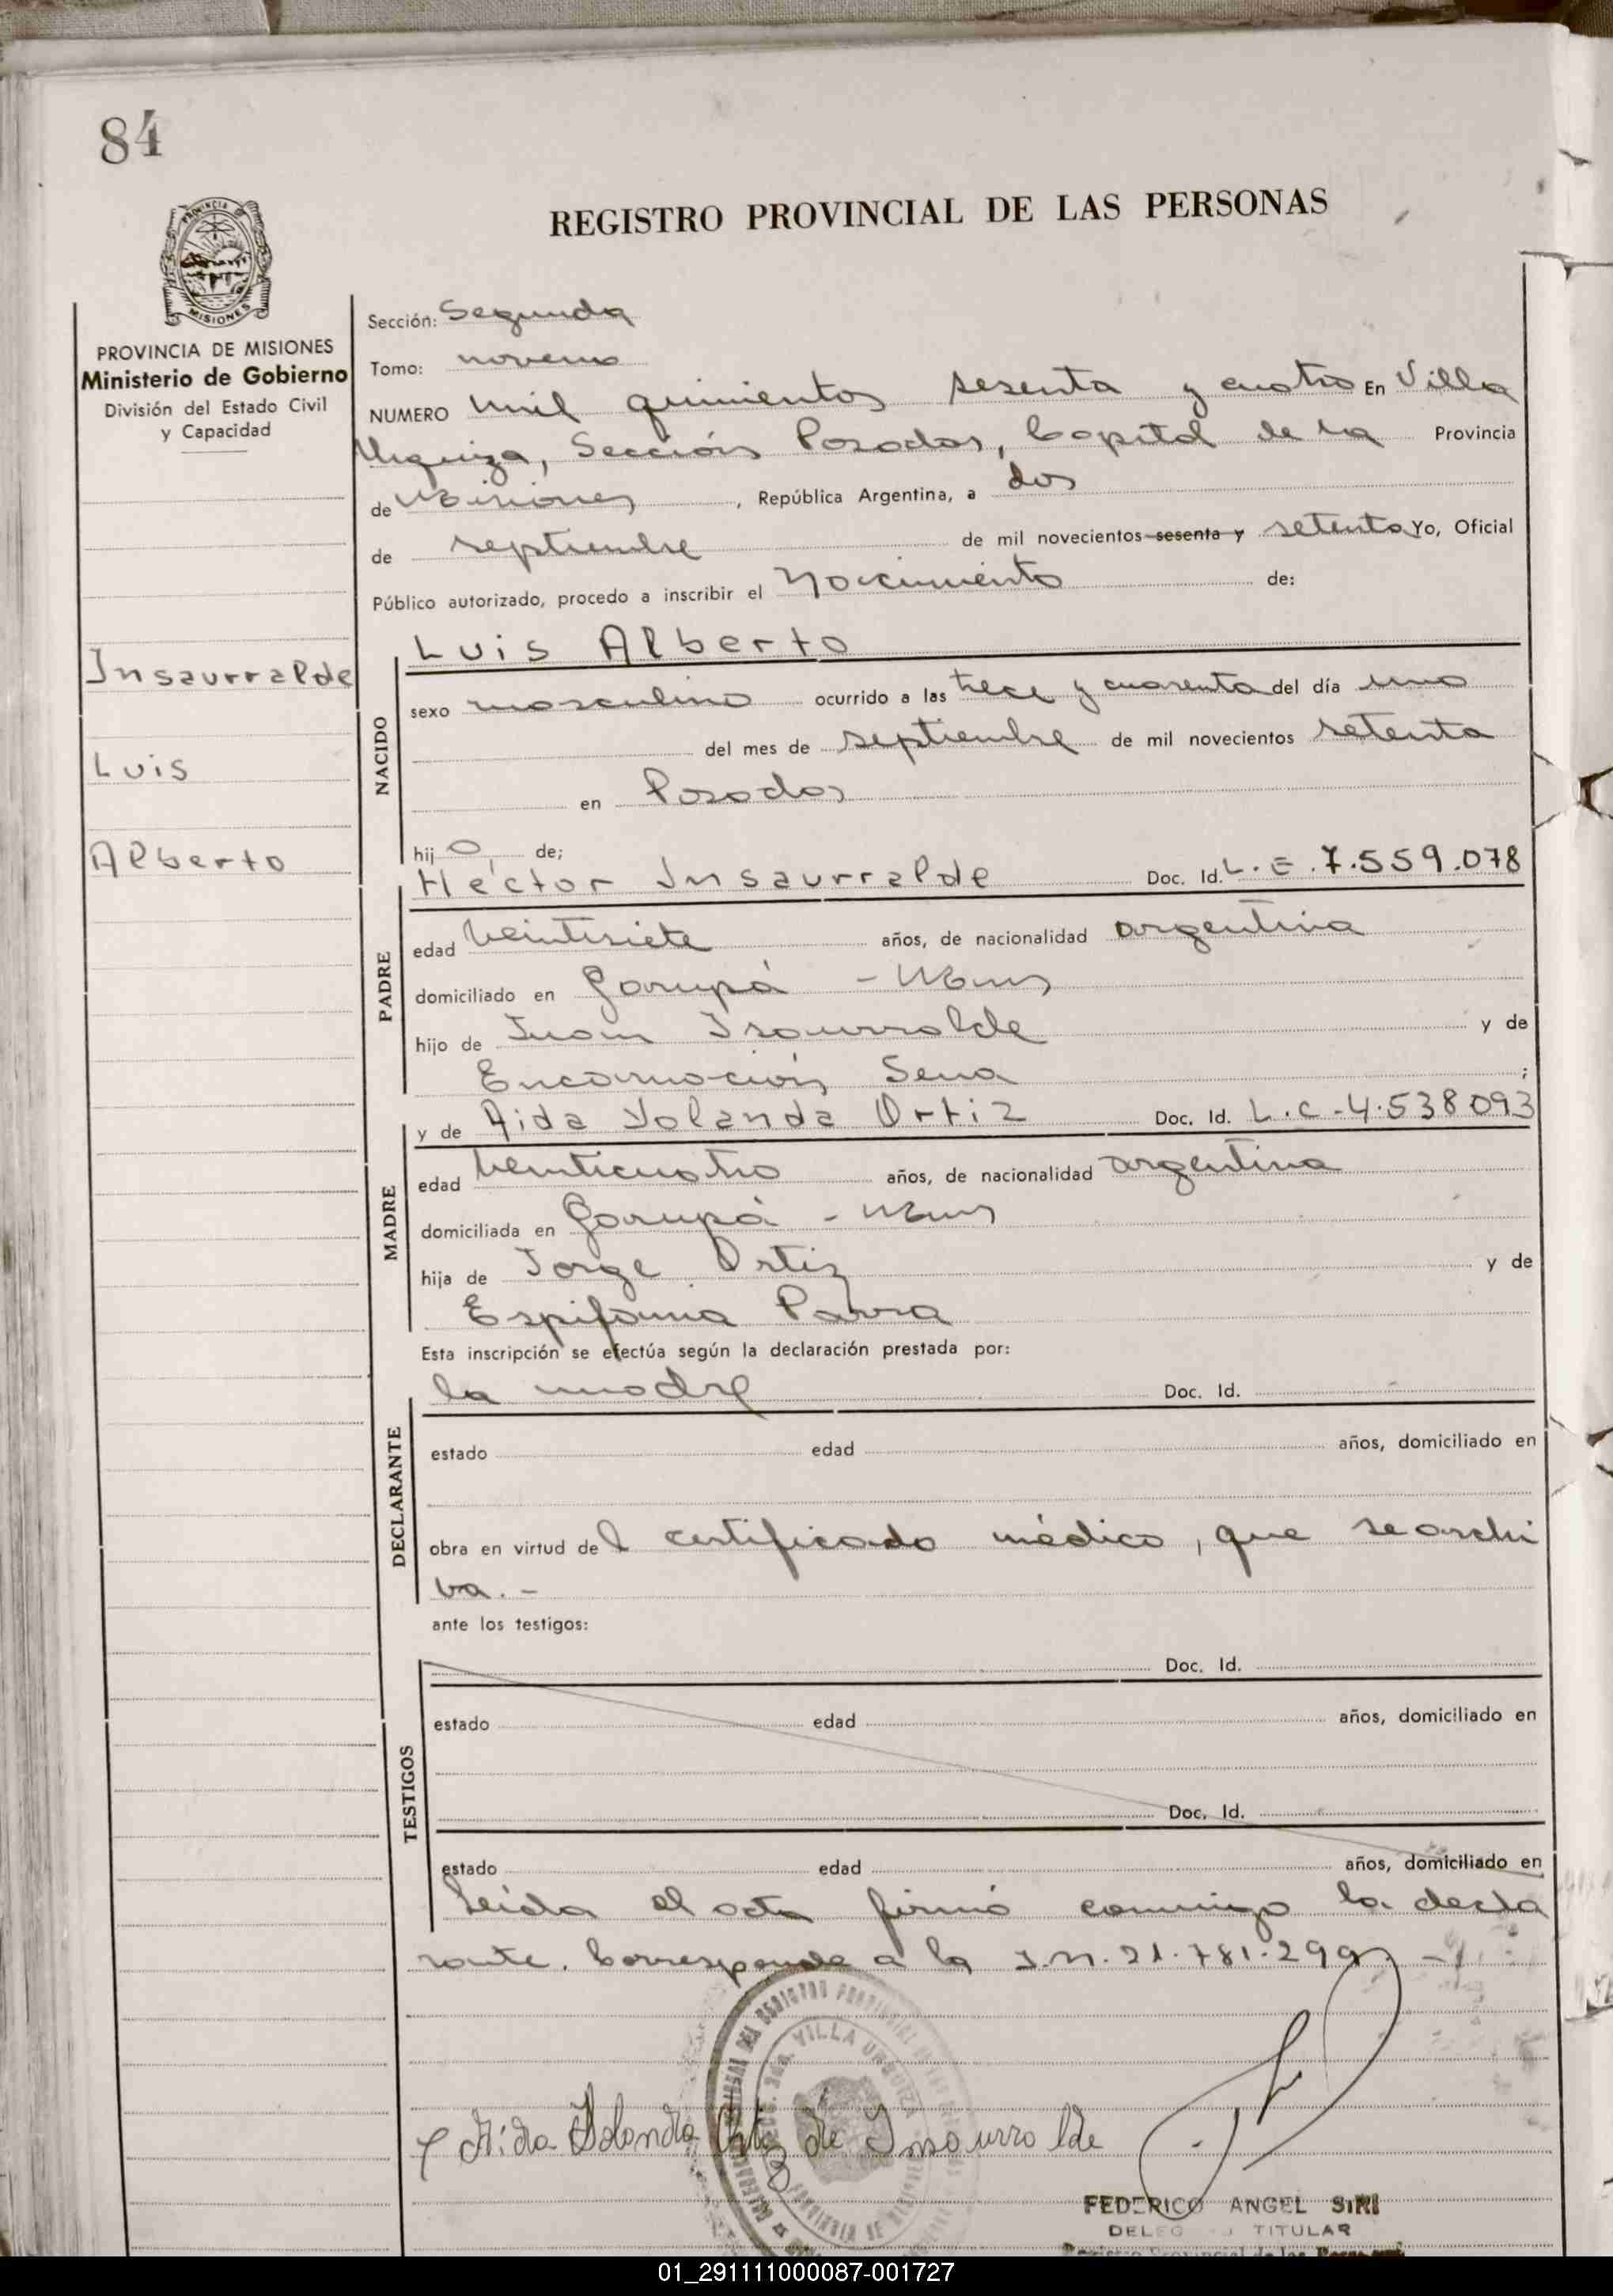 84
REGISTRO PROVINCIAL DE LAS PERSONAS
PROVINCIA DE MISIONES
Ministerio de Gobierno
División del Estado Civil
y Capacidad
Insaurralde
Luis
Alberto
Sección: Segunda
Tomo: noveno
NUMERO mil quinientos sesenta y cuatro En Villa
Urquiza, Sección Posadas, Capital de la Provincia
de Misiones, República Argentina, a dos
de septiembre de mil novecientos sesenta y setenta Yo, Oficial
Público autorizado, procedo a inscribir el Nacimiento de:
NACIDO
Luis Alberto
sexo masculino ocurrido a las trece y cuarenta del día uno
del mes de septiembre de mil novecientos setenta
en Posadas
hijo de;
PADRE
Héctor Insaurralde Doc. Id. L.E.7.559.078
edad veintisiete años, de nacionalidad argentina
domiciliado en Garupá - Mnes
hijo de Juan Isaurralde y de
Encarnación Sena ;
MADRE
y de Aida Yolanda Ortiz Doc. Id. L.C-4.538093
edad veinticuatro años, de nacionalidad argentina
domiciliada en Garupá - Mnes
hija de Jorge Ortiz y de
Espifania Parra
Esta inscripción se efectúa según la declaración prestada por:
DECLARANTE
la madre Doc. Id.
estado edad años, domiciliado en
obra en virtud del certificado médico, que se archi
va.-
ante los testigos:
TESTIGOS
Doc. Id.
estado edad años, domiciliado en
Doc. Id.
estado edad años, domiciliado en
Leída el acta firmó conmigo la decla
rante. Corresponde a la I.N.21.781.299.-
VILLA URQUIZA
Aida Yolanda Ortiz de Insaurralde
FEDERICO ANGEL SIRI
TITULAR
01_291111000087-001727